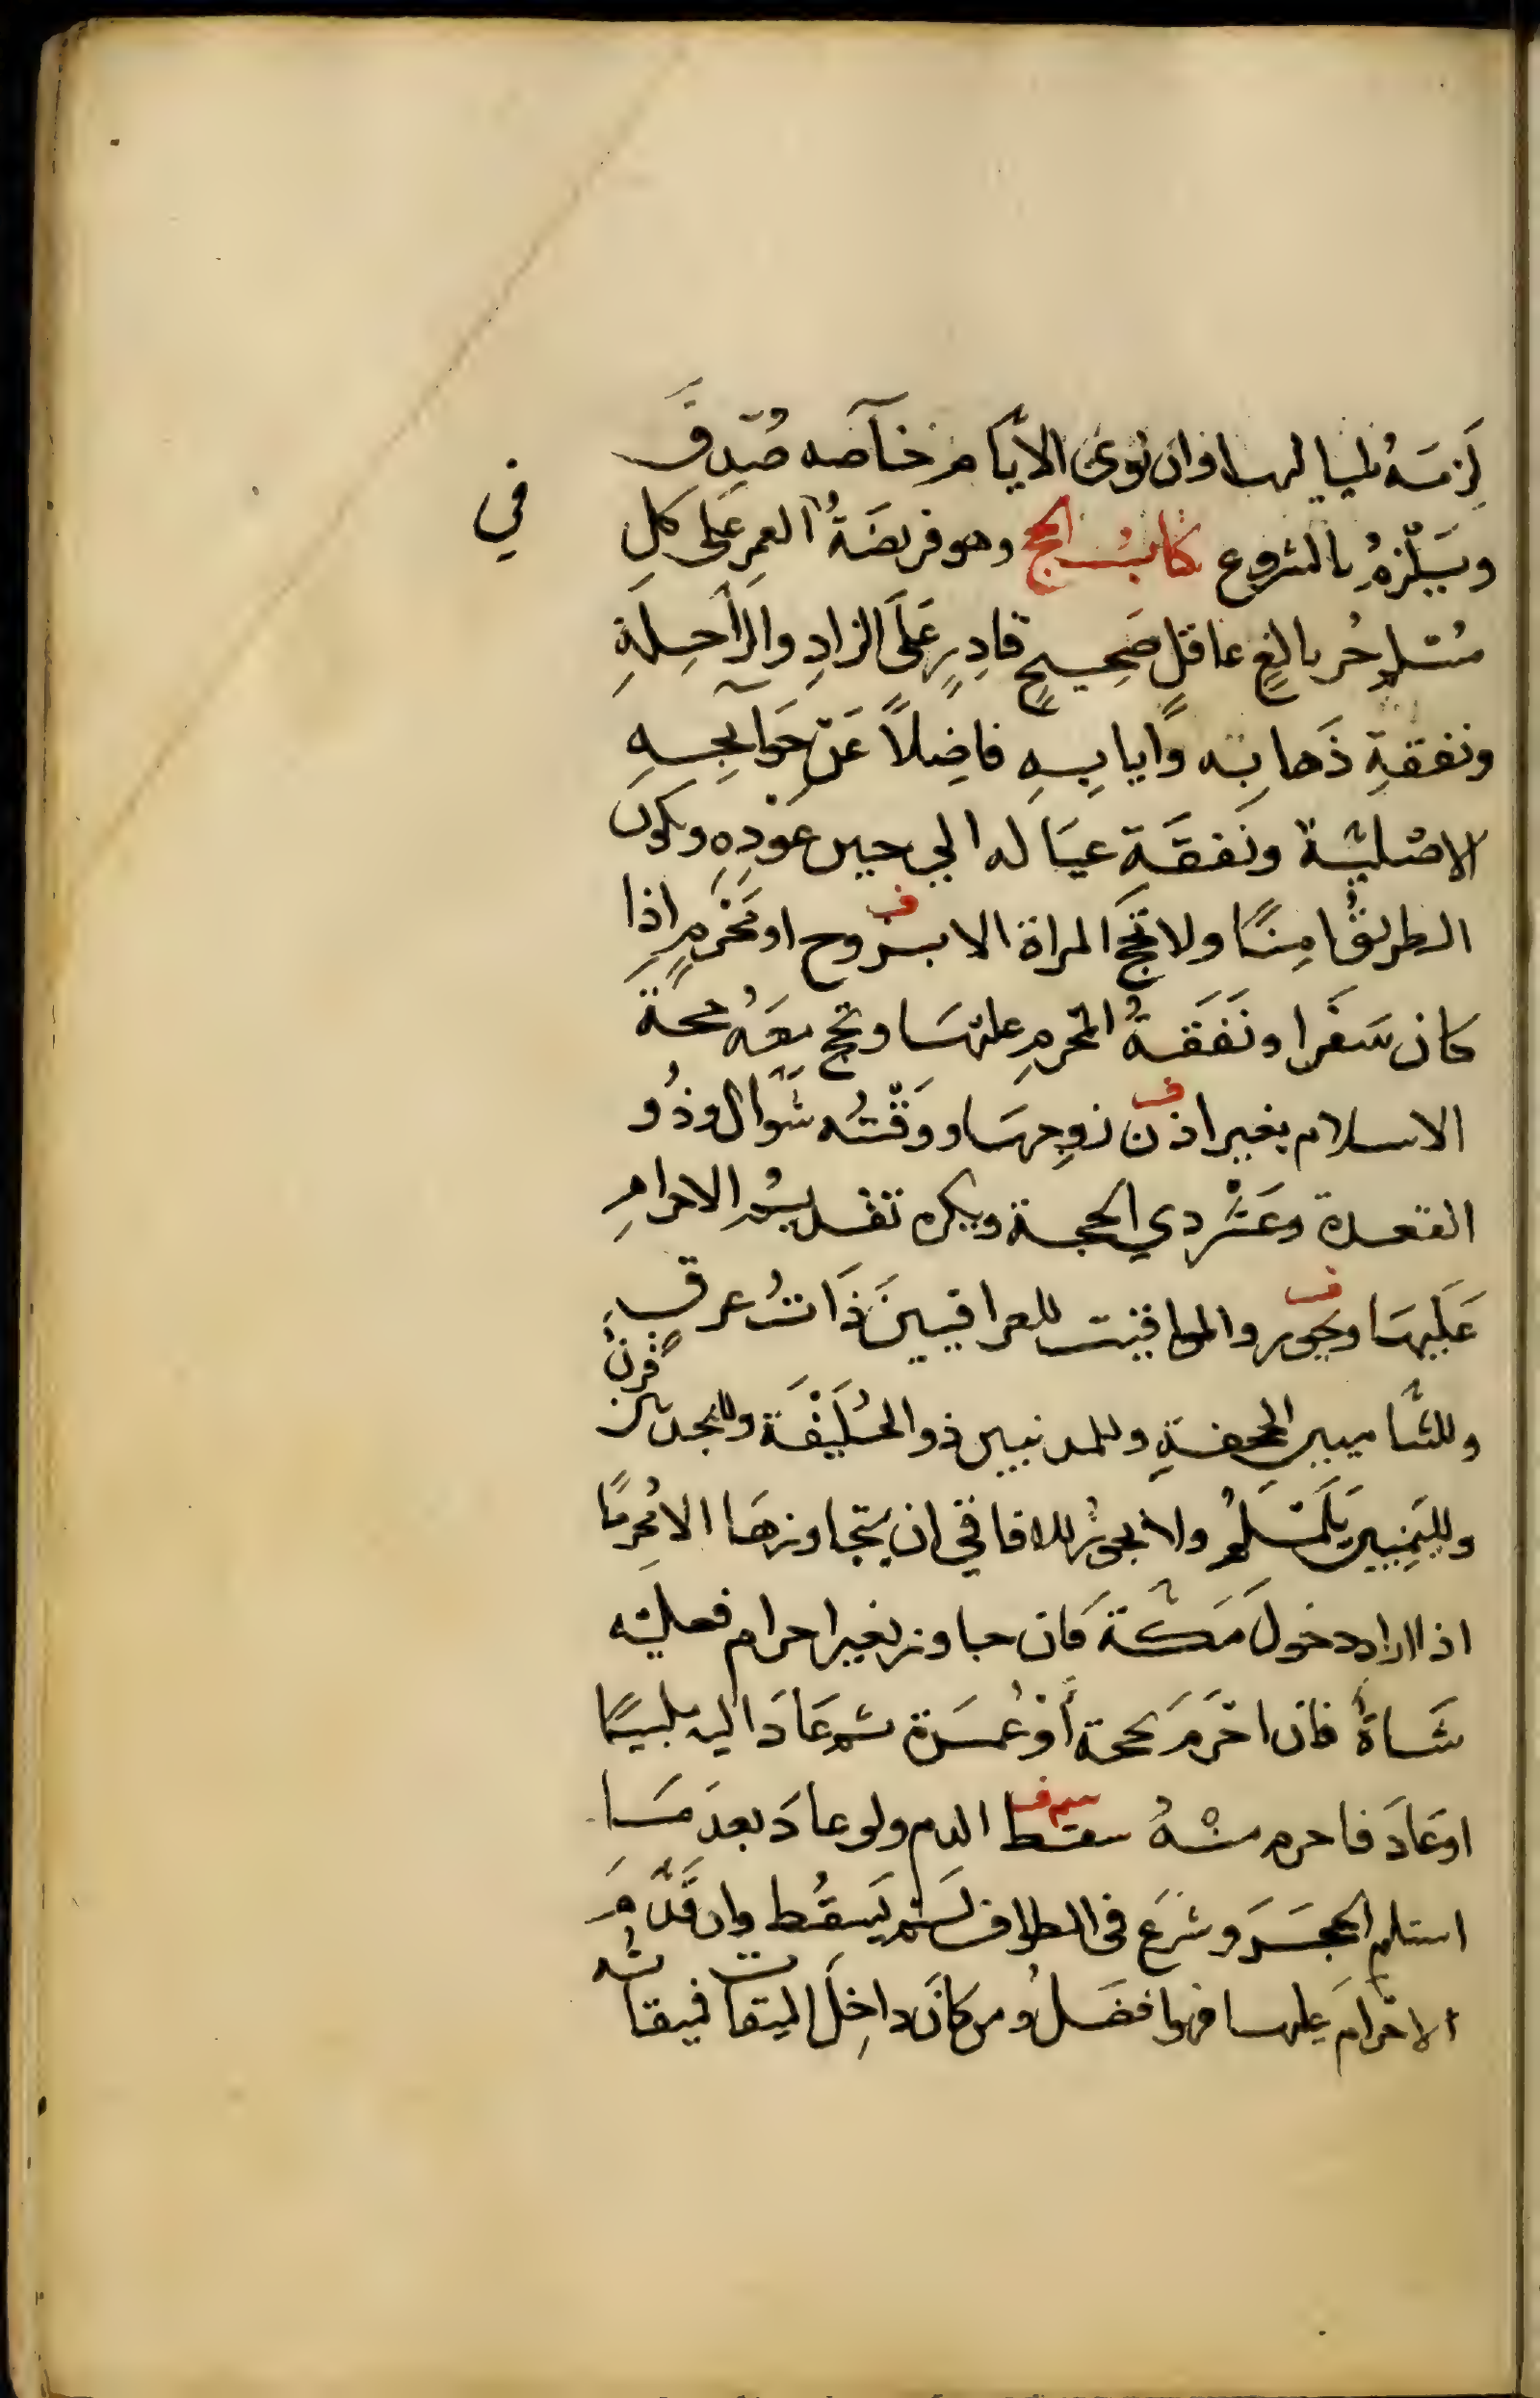 لَزِمَتهُ بليا ليها وان نوى الايّام خاصة صُدِّقَ
ويَلْزمُ بالشروع كتابُ الحج وهو فريضَةُ العمِر عَلى كلِ
في
مُسلمٍ حُرٍ بالغٍ عاقلٍ صَحِيحٍ قادِرٍ عَلَى الزادِ والرّاحِلَةِ
ونفقةِ ذَهابِه وايابِهِ فاضِلاً عَنْ حَوآيجِهِ
الاصْليّة ونَفقَةِ عيَاله الي حين عَوْدِهِ ويكون
الطريقُ امِنًا ولا تحجَّ المراة الا بزوج او مَحْرَمٍ اذا
ف
كان سَفَرا ونَفَقةُ المحْرمِ عليْهَا وتحج معَهُ حجة
الاسلام بغير اذن زوجِهَا ووَقْتُه شَوّال وذُو
ف
القعدة وعَشْر ذي الحجة ويكره تقديمُ الاحرامِ
عَلَيهَا ويجوز والمواقيت للعراقيينَ ذَاتُ عرقٍ
ف
وللشّاميين الجحفةِ وللمدنيين ذو الحُلَيْفَة وللنجديين
قرنٌ
ولليَمِنيين يَلَمْلَمُ ولا يجوزُ للافاقي ان يتجاوزهَا الا مُحْرِمًا
اذا اراد دخولَ مَكّةَ فَان جاوز بغير احرام فعليْه
شَاةٌ فان احْرَمَ بحجة أوْ عُمرَة ثم عَادَ اليه ملبيًا
او عَادَ فاحرم منْهُ سقط الدم ولو عادَ بعدَ مَا
سم ف
استلم الحجَرَ وشرَعَ في الطواف لَمْ يَسقُط وان قَدّمَ
الاحْرامَ عليها فهو افضَلُ ومن كانَ داخِلَ الميقات فميقاتُه